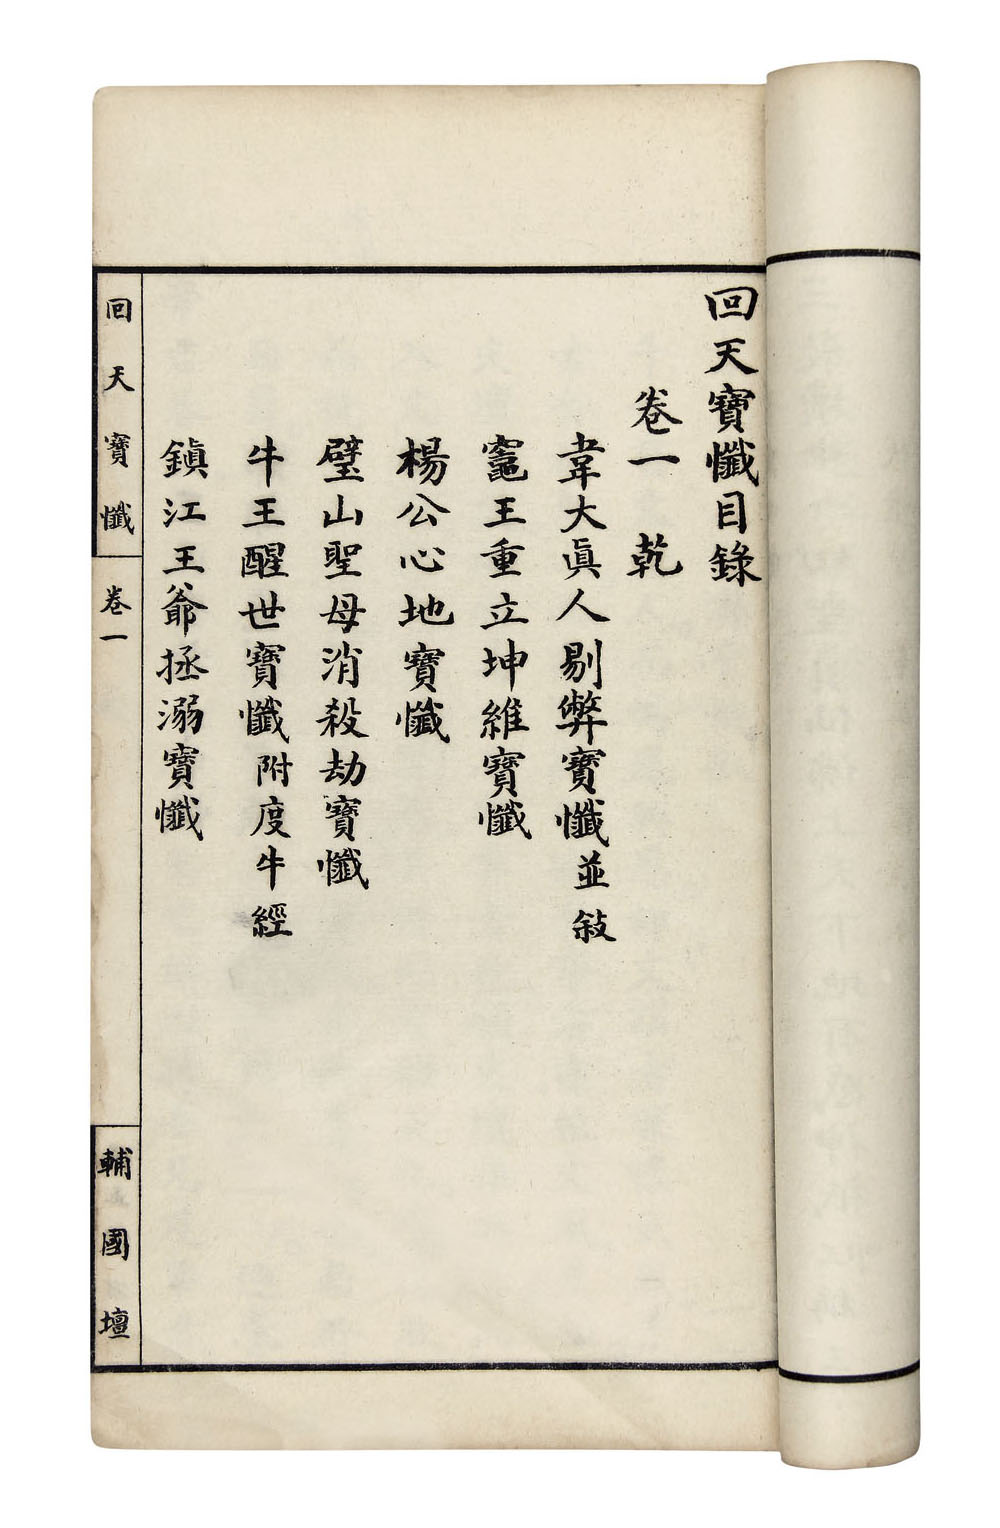 回天寶懺目錄
卷一 乾
韋大眞人剔弊寶懺並敍
竈王重立坤維寶懺
楊公心地寶懺
璧山聖母消殺劫寶懺
牛王醒世寶懺附度牛經
鎭江王爺拯溺寶懺
回天寶懺 卷一 輔國壇